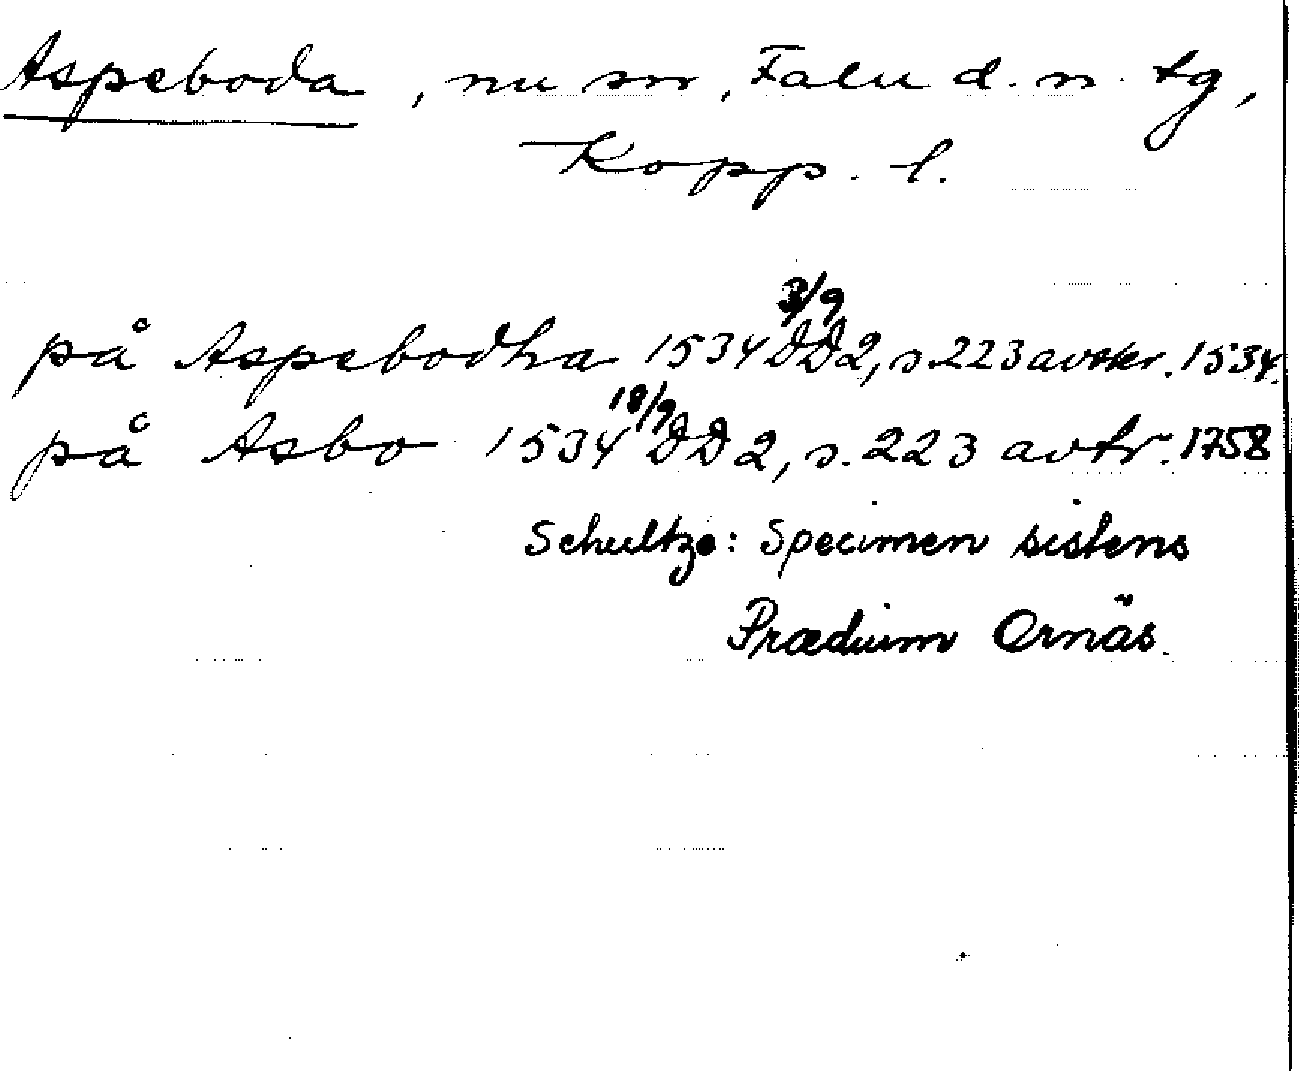 Aspeboda, nu sn, Falu d. n. tg,
Kopp. l.
på Aspebodha 1534 3/9 DD2, s. 223 avskr. 1534.
på Asbo 1534 18/9 DD2, s. 223 avtr. 1758
Schultze: Specimen sistens
Prædium Ornäs.